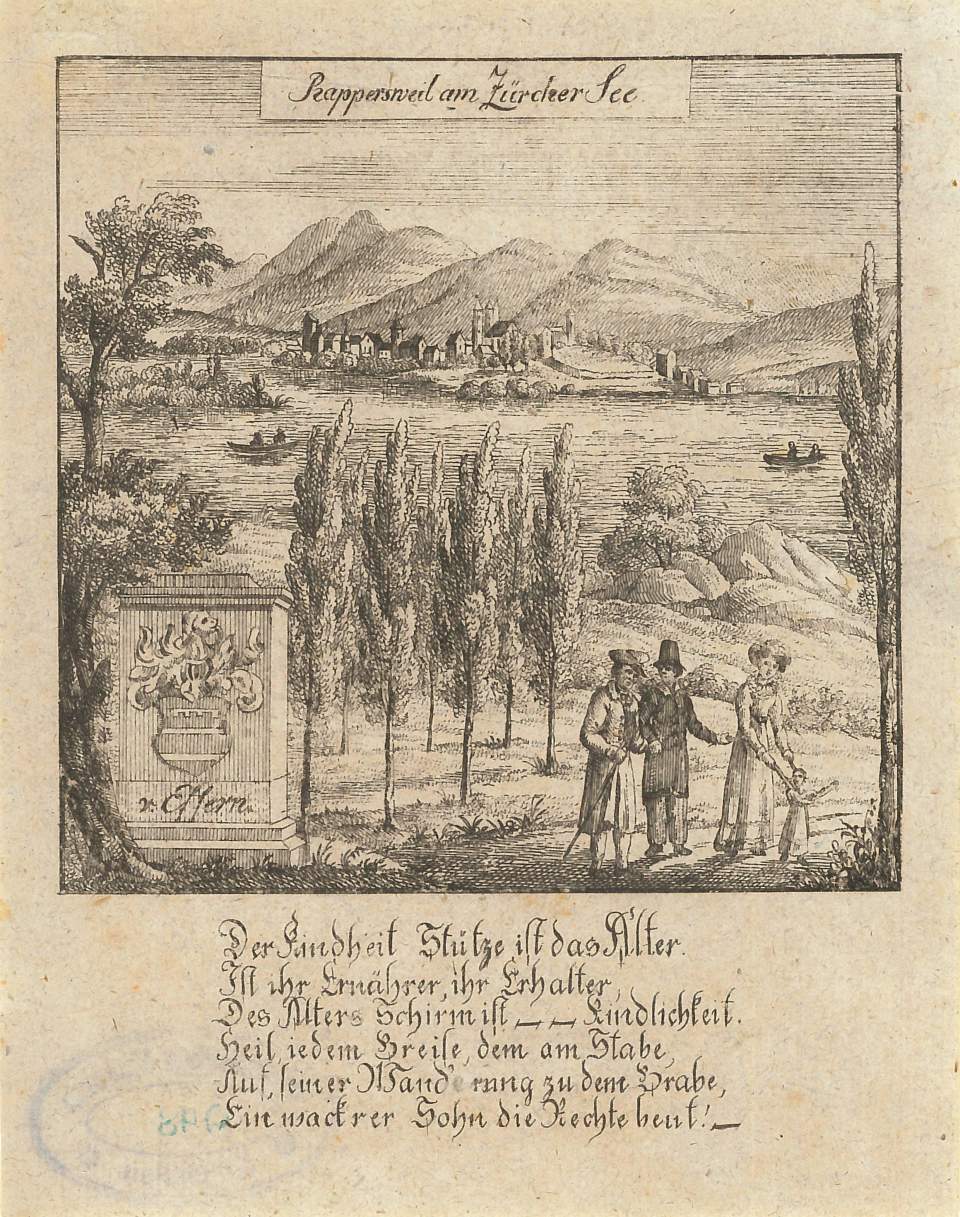 Rappersweil am Zürcher See
v. Effern.
Der Kindheit Stütze ist das Alter.
Ist ihr Ernährer, ihr Erhalter,
Des Alters Schirm ist – – Kindlichkeit.
Heil, iedem Greise, dem am Stabe,
Auf, seiner Wanderung zu dem Grabe,
Ein wackrer Sohn die Rechte beut! –